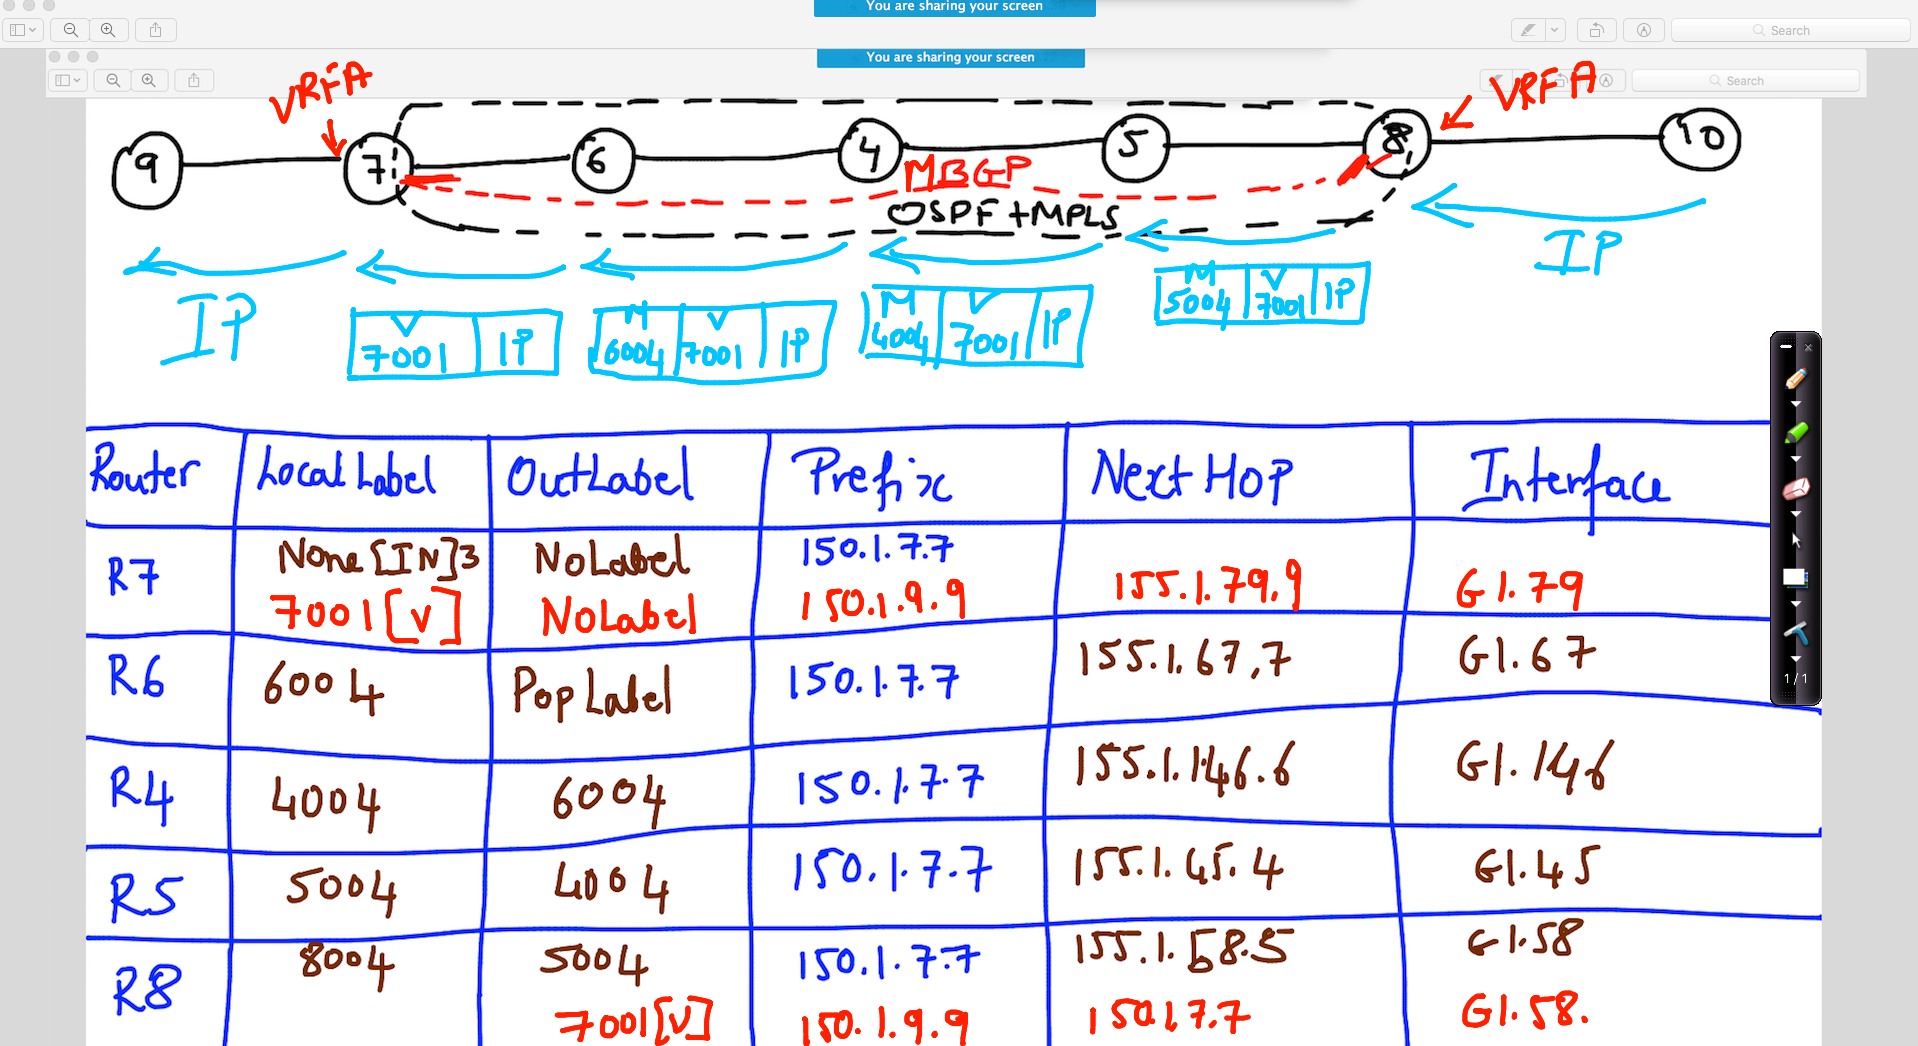 You are sharing your screen
Search
You are sharing your screen
Search
VRFA
VRFA
9 7 6 4 5 8 10
MBGP
OSPF+MPLS
IP
IP
V 7001 IP
M 6004 V 7001 IP
M 4004 V 7001 IP
M 5004 V 7001 IP
Router Local Label OutLabel Prefix Next HOP Interface
R7 None [IN] 3 NoLabel 150.1.7.7
7001 [V] NoLabel 150.1.9.9 155.1.79.9 G1.79
R6 6004 Pop Label 150.1.7.7 155.1.67.7 G1.67
R4 4004 6004 150.1.7.7 155.1.146.6 G1.146
R5 5004 4004 150.1.7.7 155.1.45.4 G1.45
R8 8004 5004 150.1.7.7 155.1.58.5 G1.58
7001 [V] 150.1.9.9 150.1.7.7 G1.58.
1 / 1